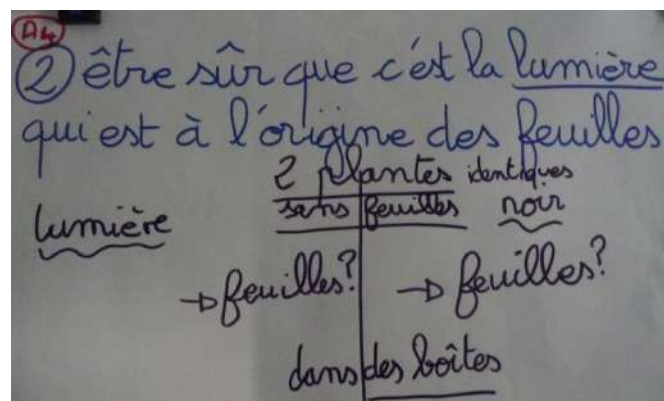 A4
② être sûr que c'est la lumière
qui est à l'origine des feuilles
2 plantes identiques
lumière sans feuilles noir
→ feuilles? → feuilles?
dans des boîtes